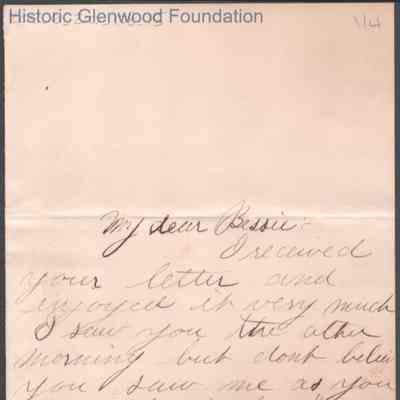 Historic Glenwood Foundation
1/4
My dear Bessie:
I received
your letter and
enjoyed it very much
I saw you the other
morning but dont believ
you saw me as you